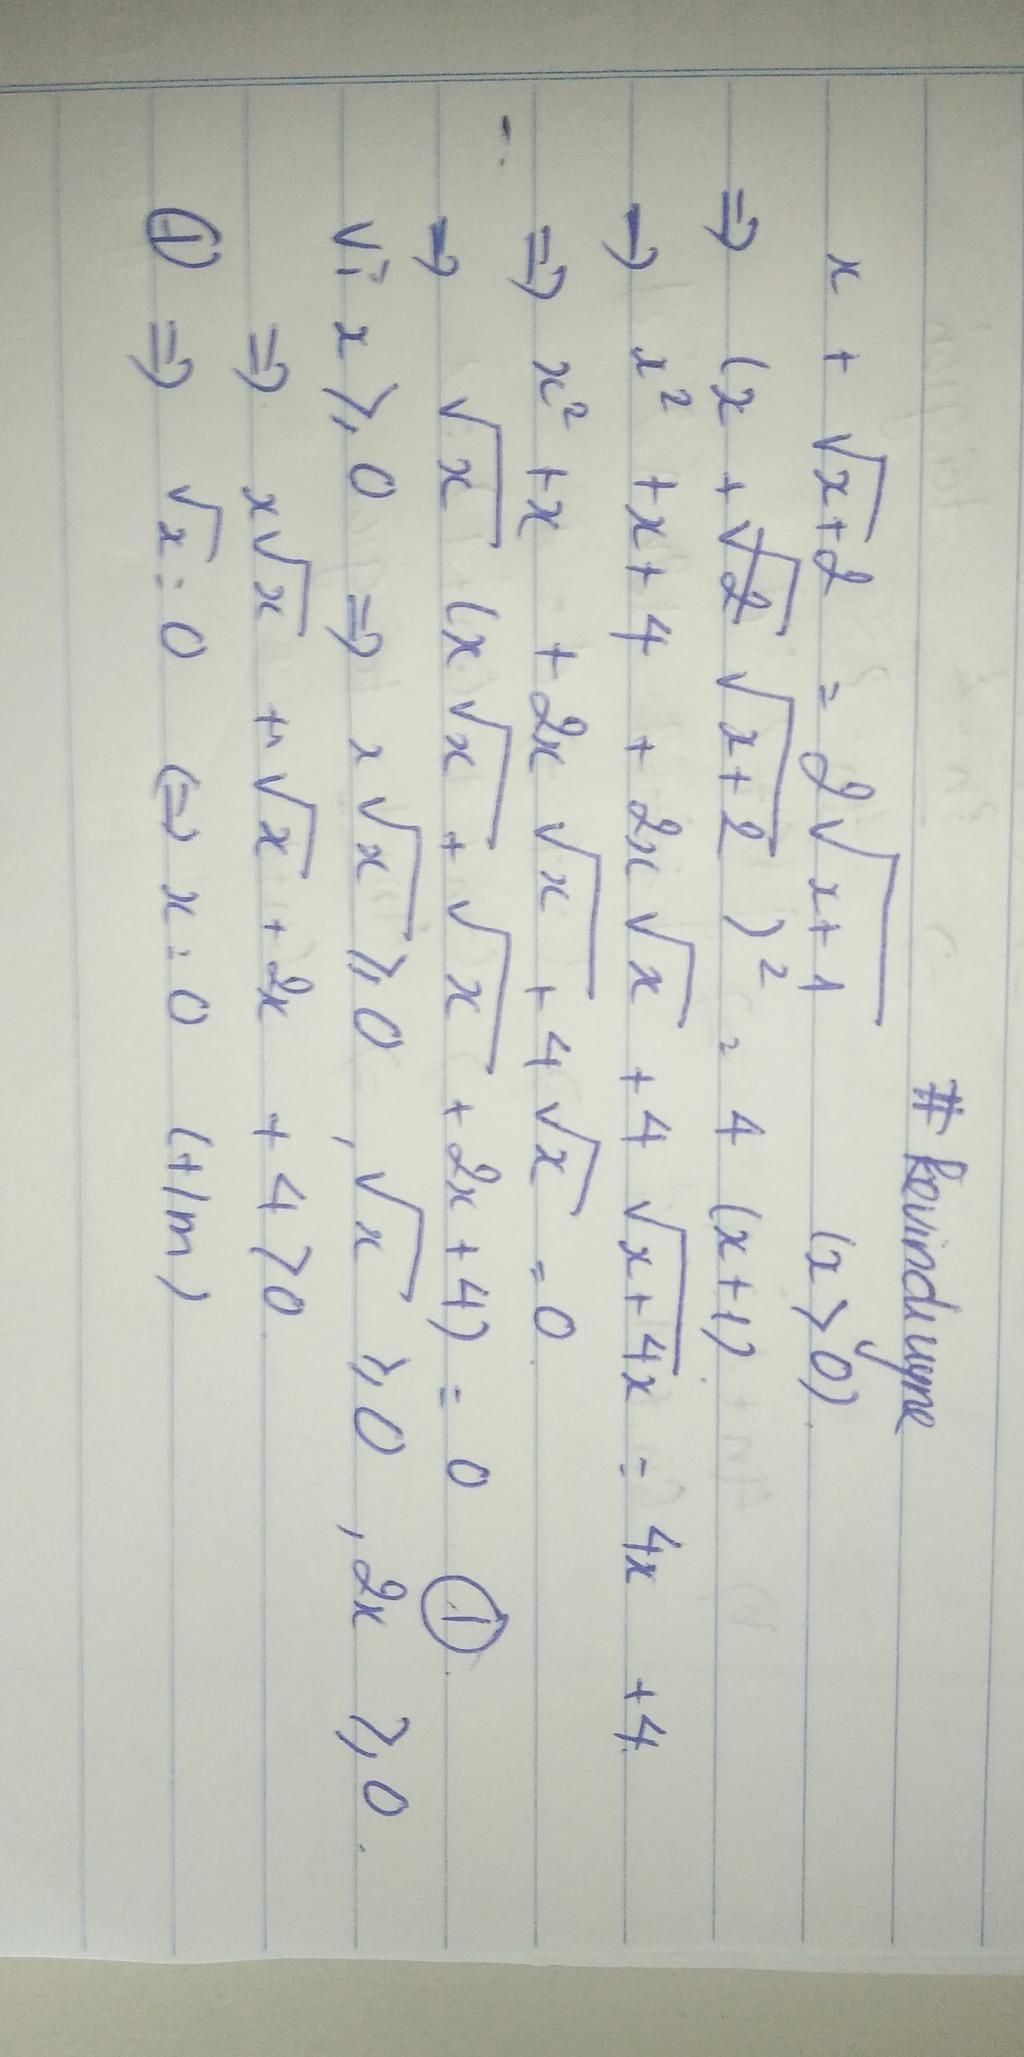 # kevindiuyne
x + √x+2 = 2√x+1 (x>0).
=> (x + √2 √x+2)² = 4 (x+1)
=> x² + x + 4 + 2x√x + 4√x+4x = 4x + 4
=> x² + x + 2x√x + 4√x = 0
=> √x (x√x + √x + 2x + 4) = 0 ①
Vì x ⩾ 0 => x√x ⩾ 0, √x ⩾ 0, 2x ⩾ 0.
=> x√x + √x + 2x + 4 > 0
① => √x = 0 <=> x = 0 (t/m)